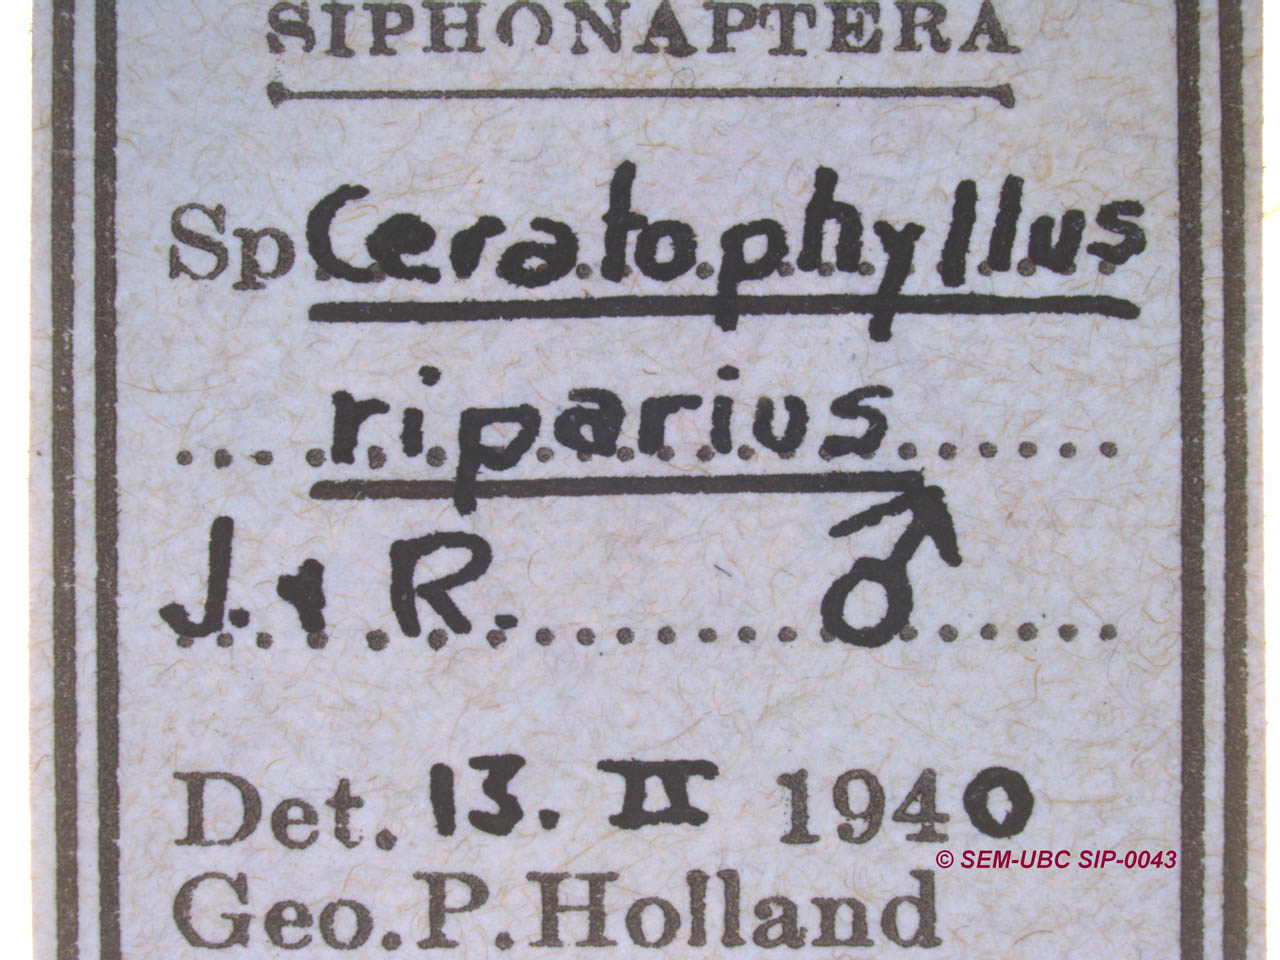 SIPHONAPTERA
Sp Ceratophyllus
riparius
J. & R. ♂
Det. 13. II 1940
© SEM-UBC SIP-0043
Geo. P. Holland